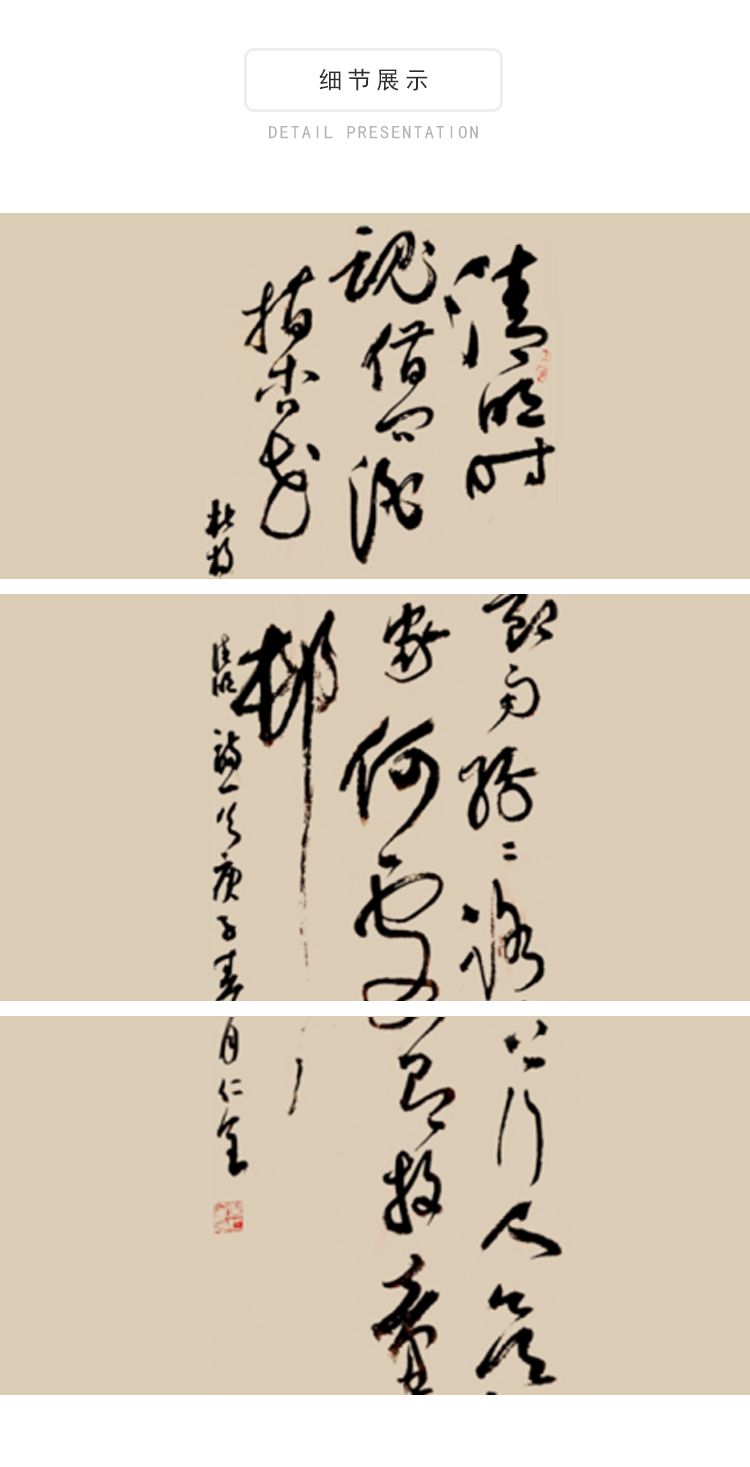 细节展示
DETAIL PRESENTATION
清明时
魂借问酒
指杏花
杜牧
节雨纷々路
家何处
村
清明诗一首庚子春
上行人欲
有牧童
月仁